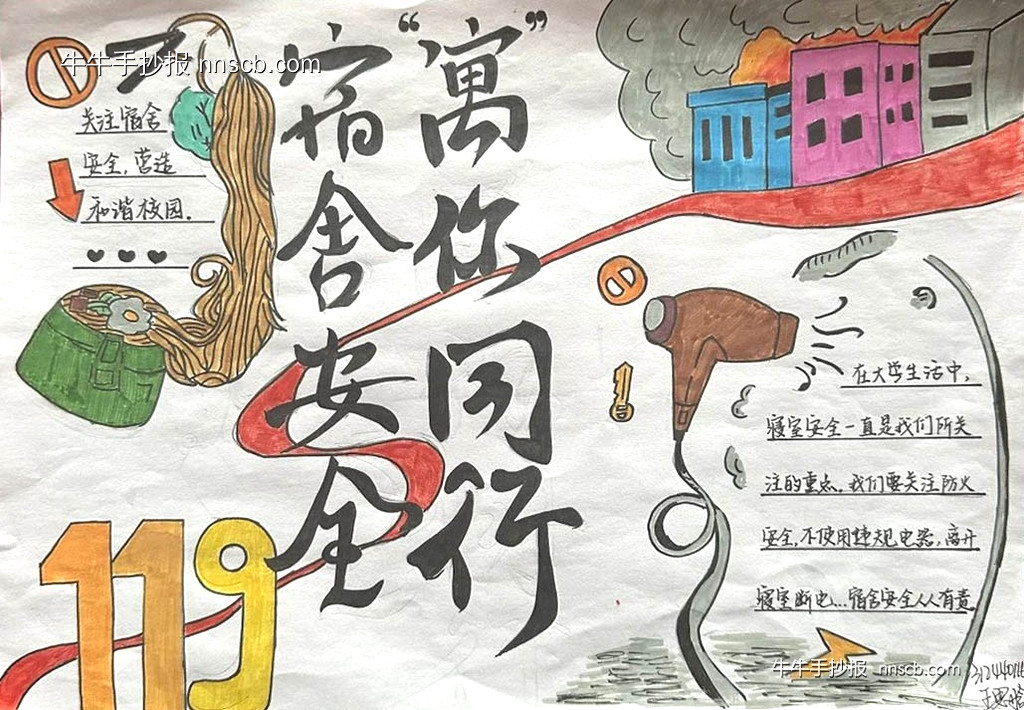 牛牛手抄报 hnscb.com
关注宿舍
安全,营造
和谐校园.
宿舍安全
“寓”你同行
119
在大学生活中,
寝室安全一直是我们所关
注的重点。我们要关注防火
安全,不使用违规电器,离开
寝室断电...宿舍安全人人有责。
牛牛手抄报 hnscb.com